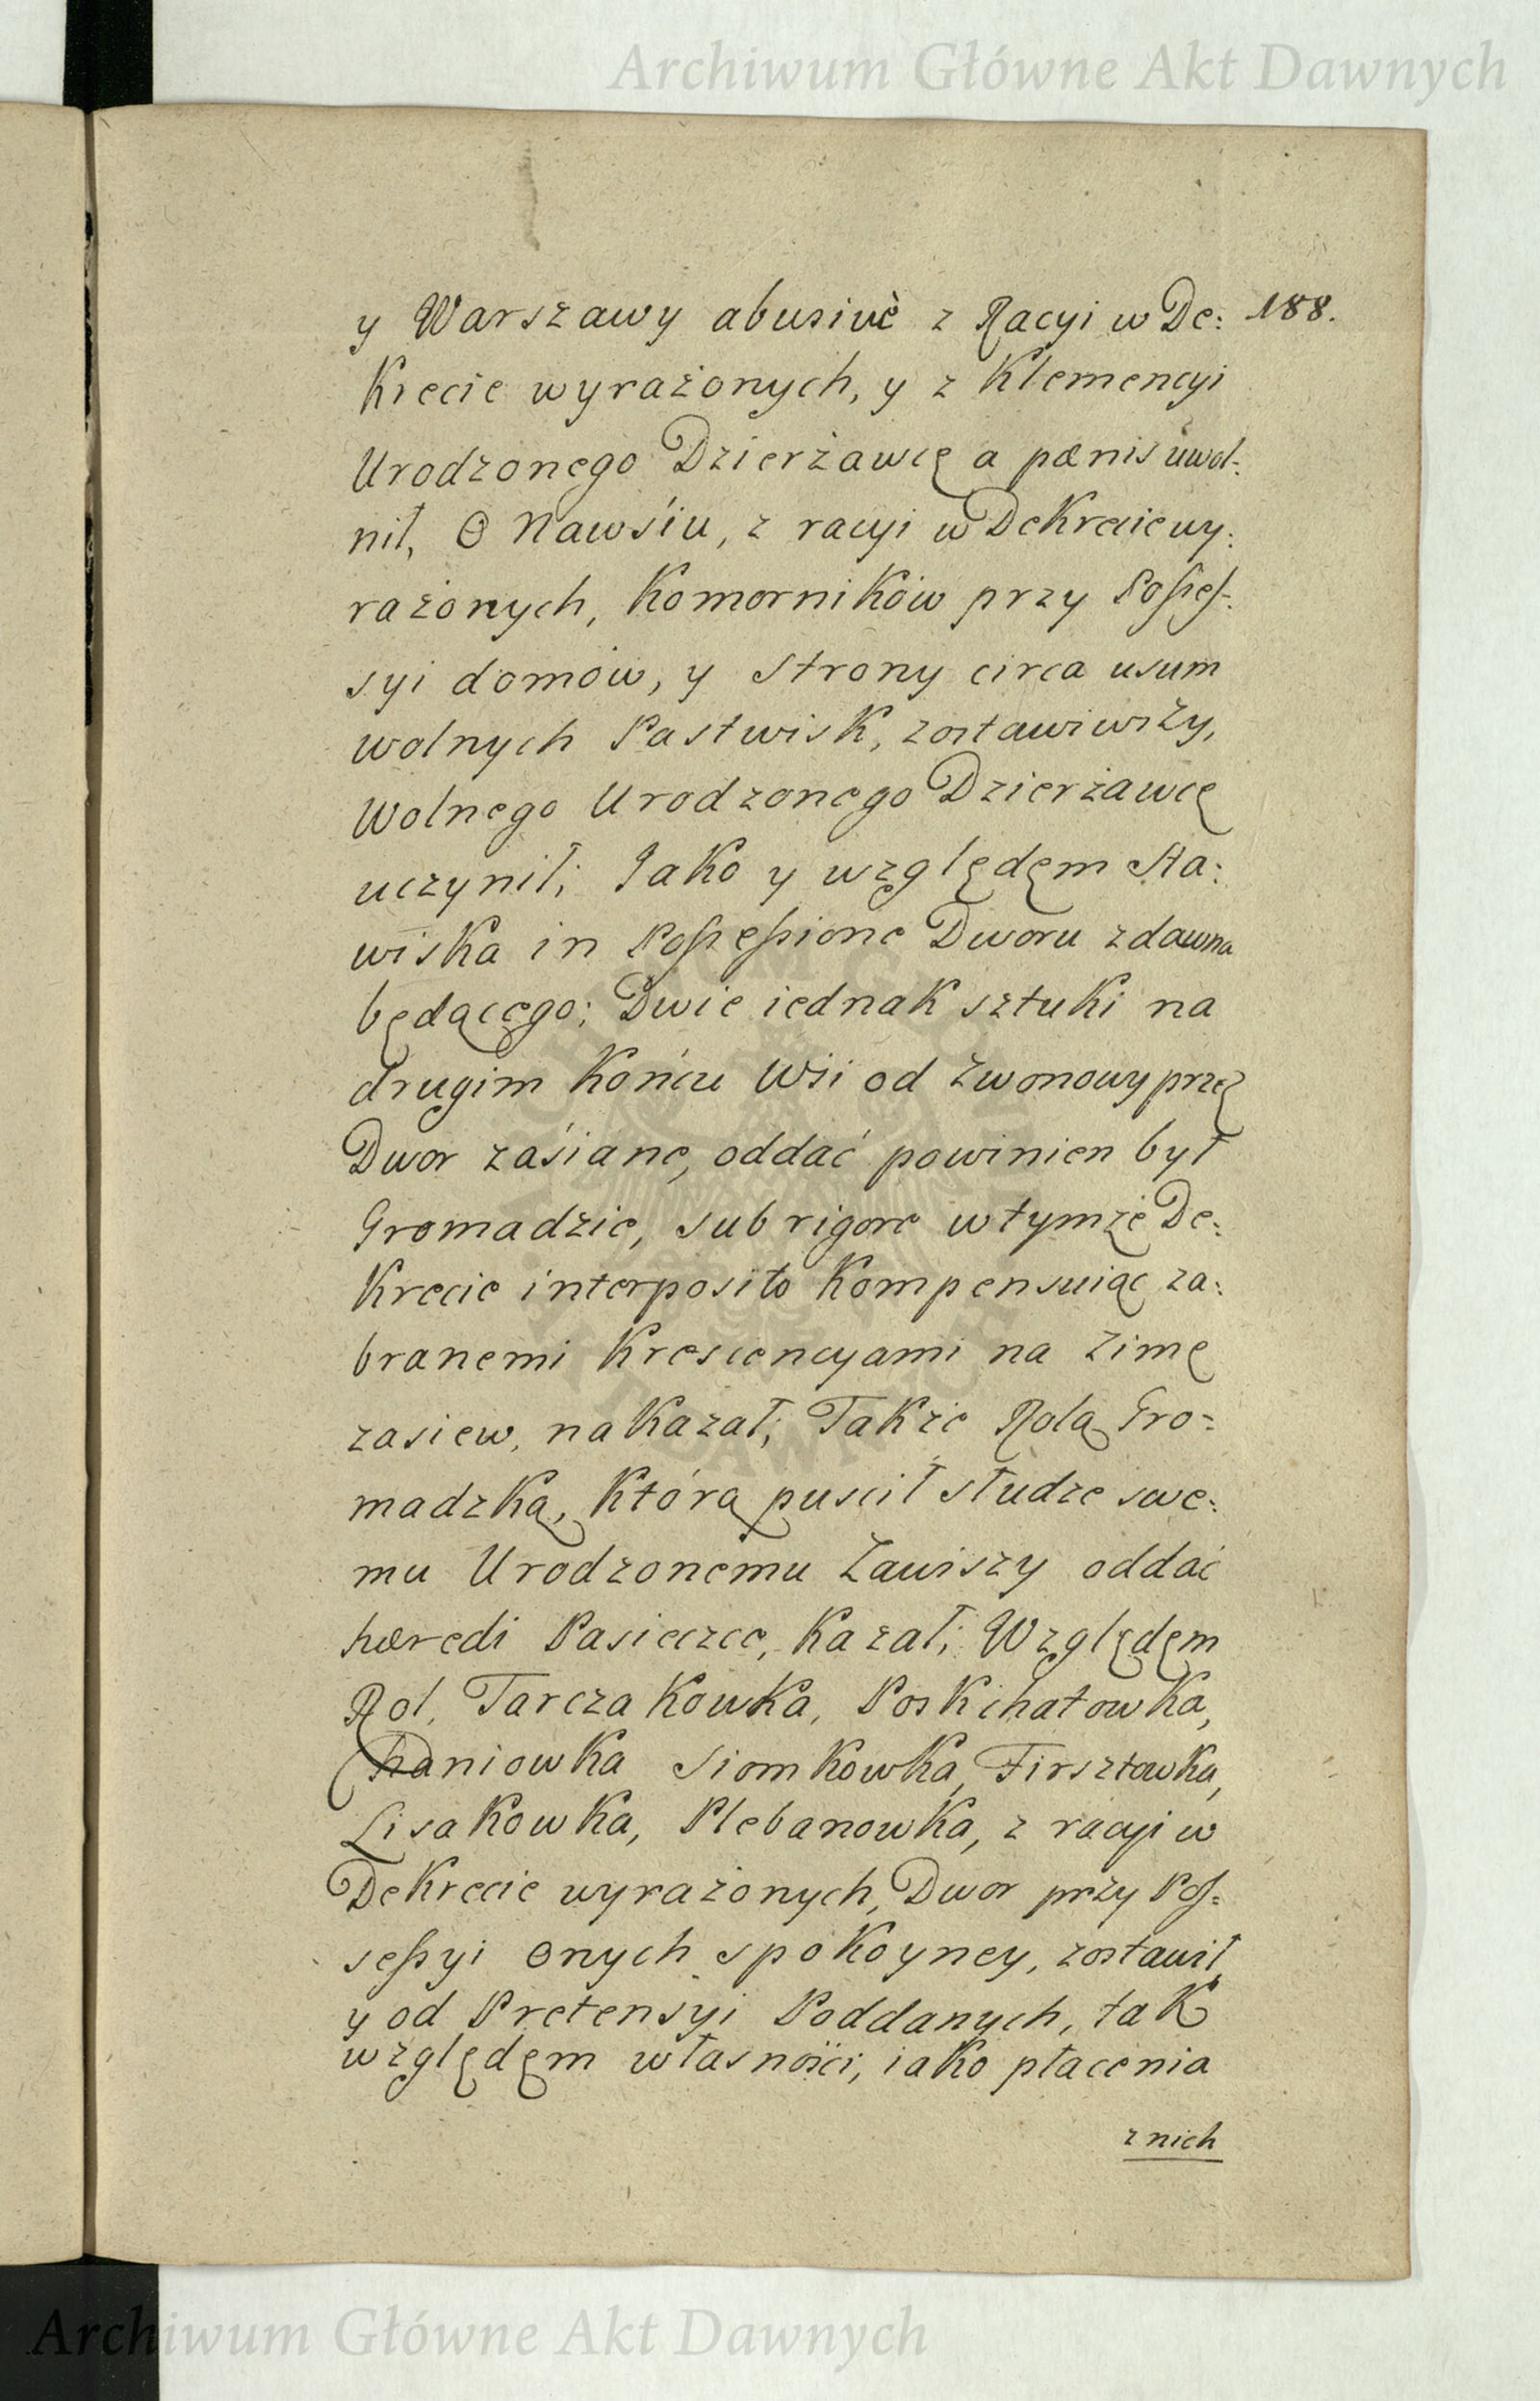 Archiwum Główne Akt Dawnych
188.
y Warszawy abusivè z Racyi w De:
krecie wyrażonych, y z Klemencyi
Urodzonego Dzierżawcę a pœnis uwol:
nił, O Nawśiu, z racyi w Dekrecie wy:
rażonych, Komorników przy Posses:
syi domów, y Strony circa usum
wolnych Pastwisk, zostawiwszy,
Wolnego Urodzonego Dzierżawcę
uczynił; Jako y względęm Sta:
wiska in Possessione Dworu zdawna
będącęgo; Dwie iednak sztuki na
drugim końcu Wśi od Zwonowy przę
Dwor zaśiane, oddać powinien był
Gromadzie, sub rigore w tymże De:
krecie interposito kompensuiąc za:
branemi krescencyami na zimę
zasiew, nakazał; Także Rolą Gro=
madzką, którą puscił słudze swe:
mu Urodzonemu Zawiszy oddać
hæredi Pasieczce, kazał; Względęm
Rol, Tarczakowka, Poskichatowka,
Chaniowka Siomkowka, Firsztowka,
Lisakowka, Plebanowka, z racyi w
Dekrecie wyrażonych, Dwor przy Pos=
sessyi onych spokoyney, zostawił
y od Pretensyi Poddanych, tak
względęm własności, iako płacenia
z nich
Archiwum Główne Akt Dawnych